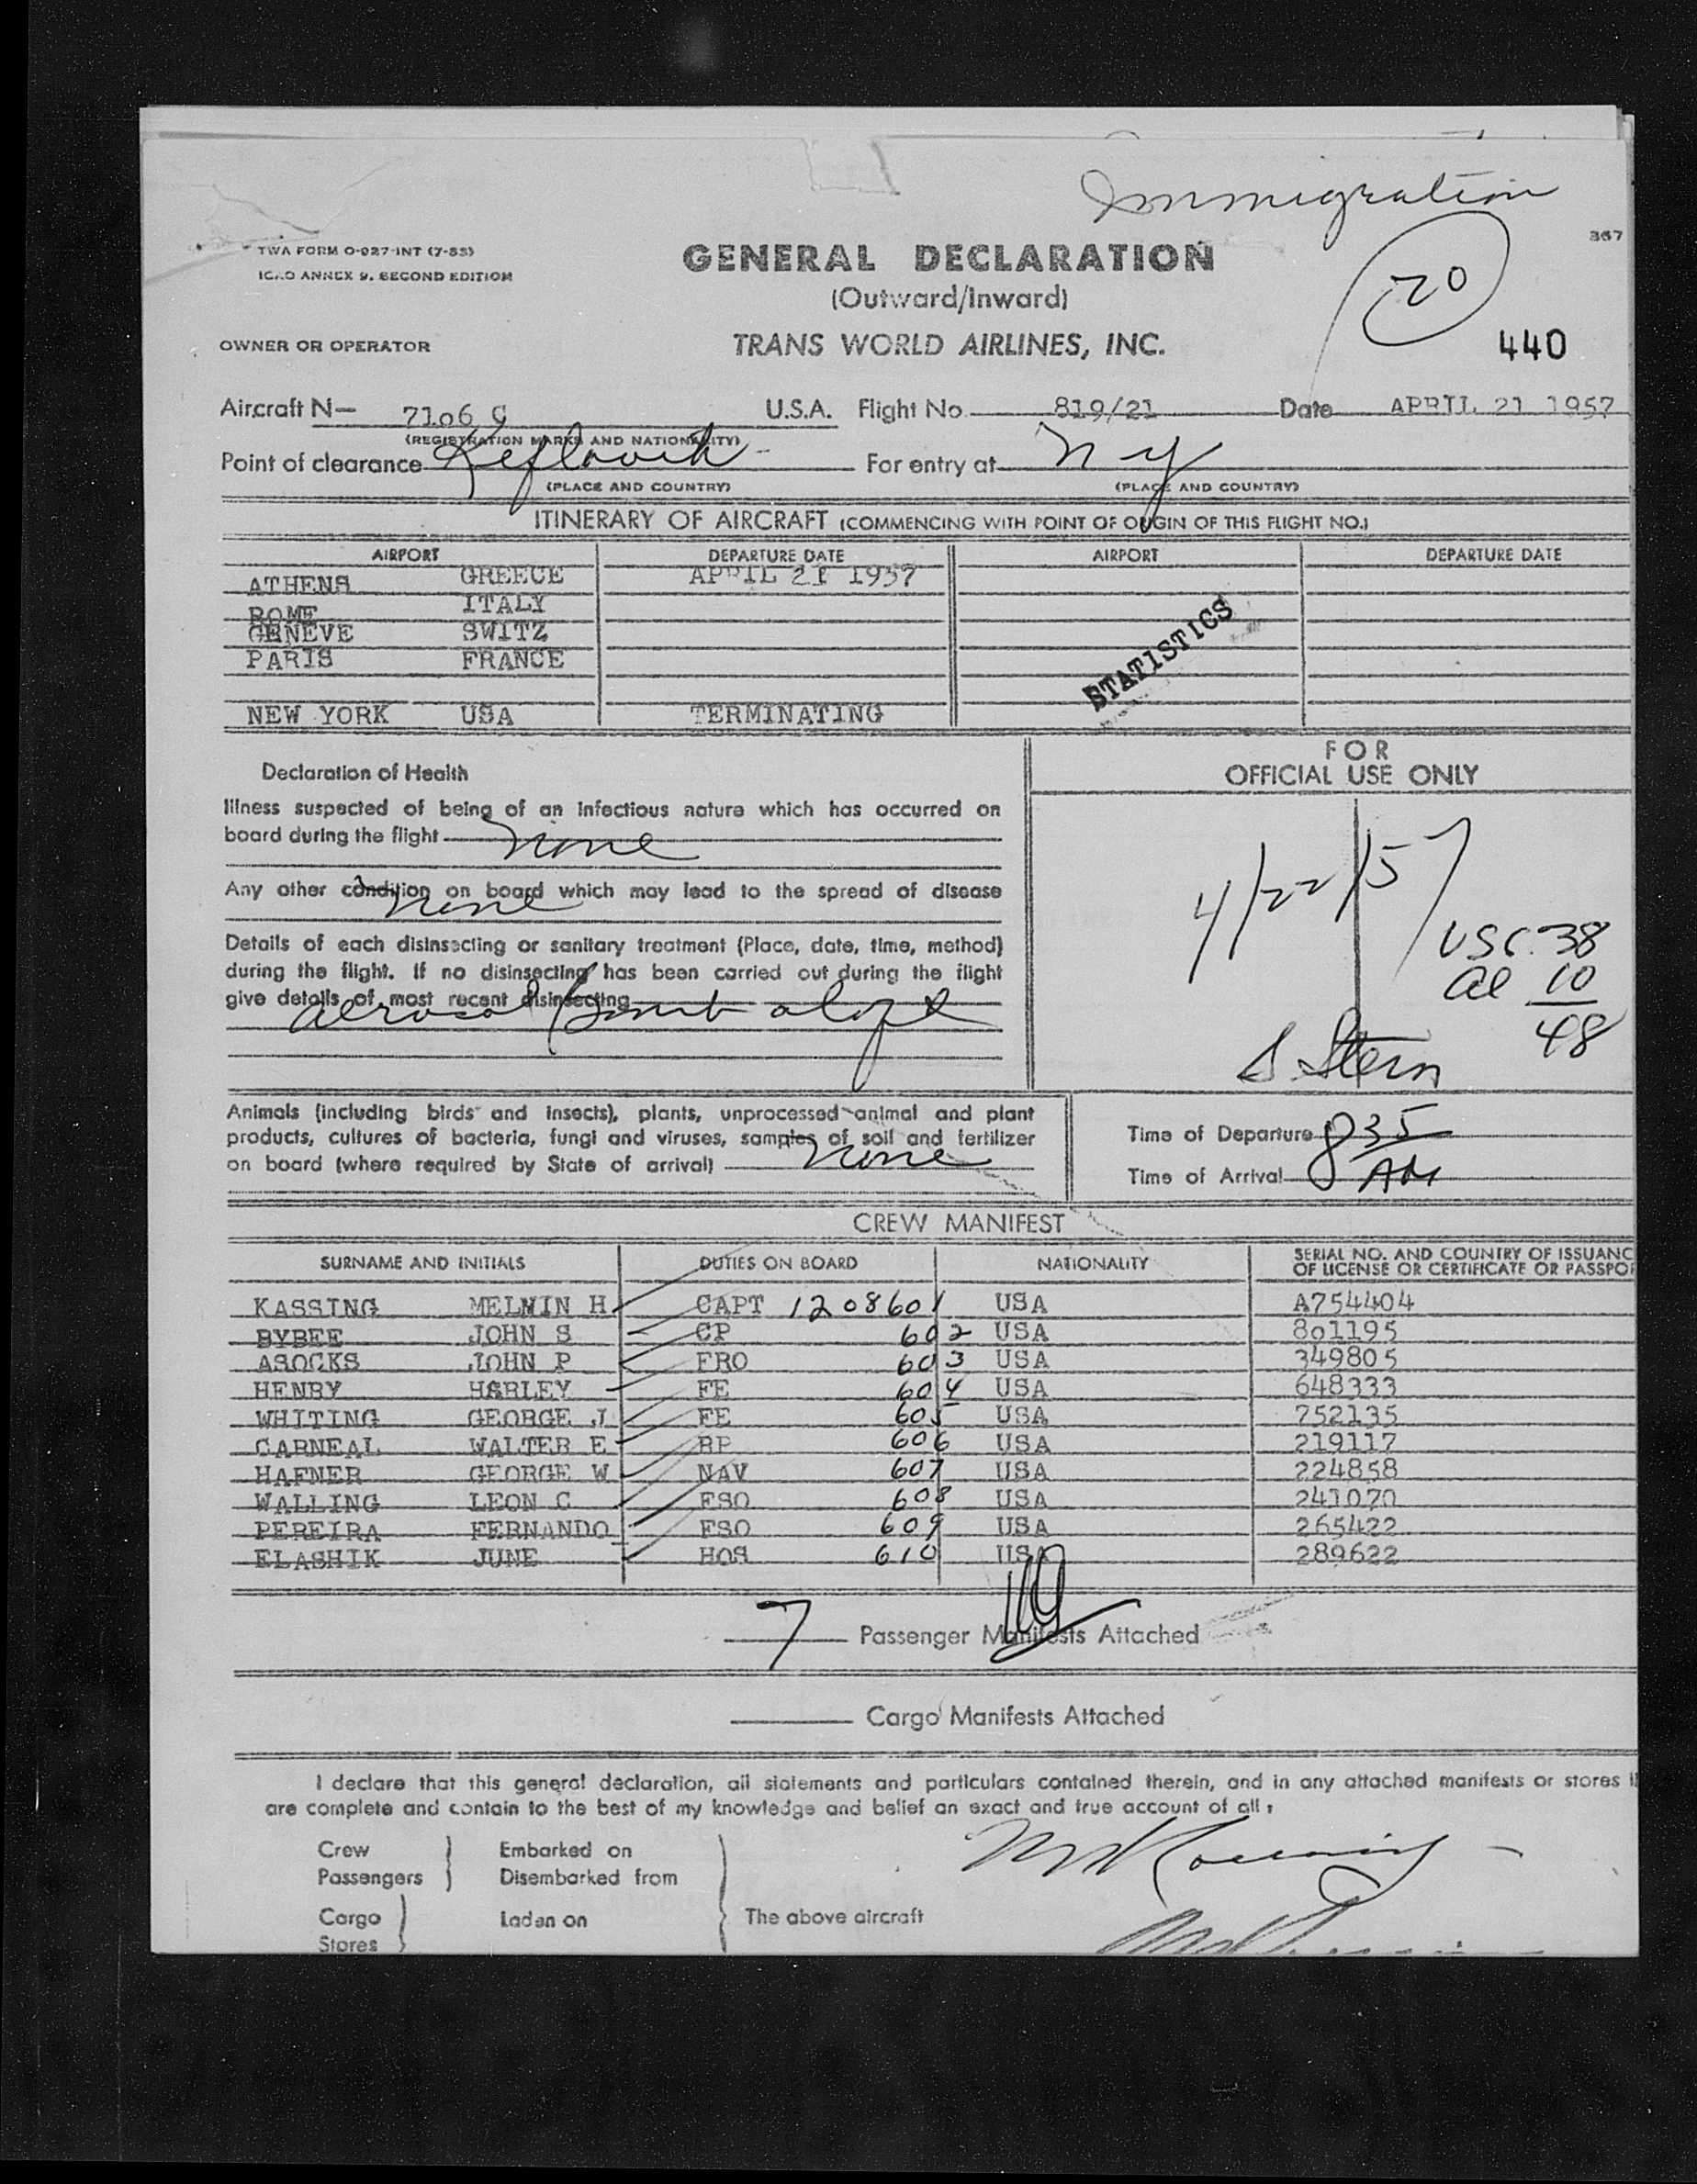 Immigration
367
TWA FORM O-027-INT (7-55)
ICAO ANNEX 9, SECOND EDITION
GENERAL DECLARATION
(Outward/Inward)
20
OWNER OR OPERATOR TRANS WORLD AIRLINES, INC. 440
Aircraft N— 7106 C U.S.A. Flight No. 819/21 Date APRIL 21 1957
(REGISTRATION MARKS AND NATIONALITY)
Point of clearance Keflavik For entry at N Y
(PLACE AND COUNTRY) (PLACE AND COUNTRY)
ITINERARY OF AIRCRAFT (COMMENCING WITH POINT OF ORIGIN OF THIS FLIGHT NO.)
AIRPORT DEPARTURE DATE AIRPORT DEPARTURE DATE
ATHENS GREECE APRIL 21 1957
ROME ITALY
GENEVE SWITZ
PARIS FRANCE
STATISTICS
NEW YORK USA TERMINATING
FOR
OFFICIAL USE ONLY
Declaration of Health
Illness suspected of being of an infectious nature which has occurred on
board during the flight none
Any other condition on board which may lead to the spread of disease
none
Details of each disinsecting or sanitary treatment (Place, date, time, method)
during the flight. If no disinsecting has been carried out during the flight
give details of most recent disinsecting
aerosol bomb
4/22/57
USC 38
al 10
48
S. Stern
Animals (including birds and insects), plants, unprocessed animal and plant
products, cultures of bacteria, fungi and viruses, samples of soil and fertilizer
on board (where required by State of arrival) none
Time of Departure 835
Time of Arrival AM
CREW MANIFEST
SURNAME AND INITIALS DUTIES ON BOARD NATIONALITY SERIAL NO. AND COUNTRY OF ISSUANC
OF LICENSE OR CERTIFICATE OR PASSPO
KASSING MELVIN H CAPT 1208601 USA A754404
BYBEE JOHN S CP 602 USA 801195
ASOCKS JOHN P FRO 603 USA 349805
HENRY HARLEY FE 604 USA 648333
WHITING GEORGE J FE 605 USA 752135
CARNEAL WALTER E RP 606 USA 219117
HAFNER GEORGE W NAV 607 USA 224858
WALLING LEON C FSO 608 USA 241070
PEREIRA FERNANDO FSO 609 USA 265422
ELASHIK JUNE HOS 610 USA 289622
7 Passenger Manifests Attached
Cargo Manifests Attached
I declare that this general declaration, all statements and particulars contained therein, and in any attached manifests or stores
are complete and contain to the best of my knowledge and belief an exact and true account of all:
Crew Embarked on
Passengers Disembarked from
Cargo Laden on The above aircraft
Stores